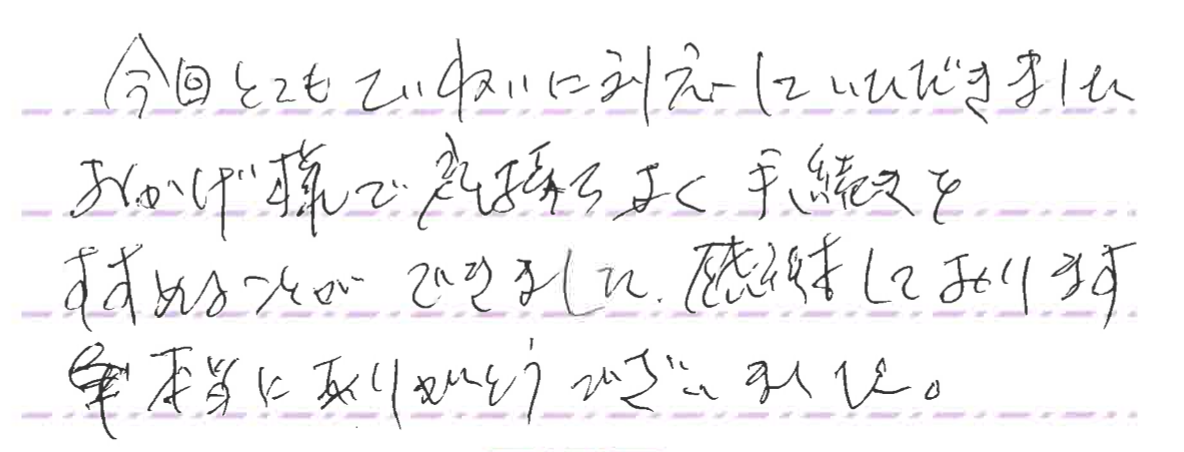 今回とてもていねいに対応していただきました
おかげ様で気持ちよく手続きを
すすめることができました。感謝しております
本当にありがとうございました。